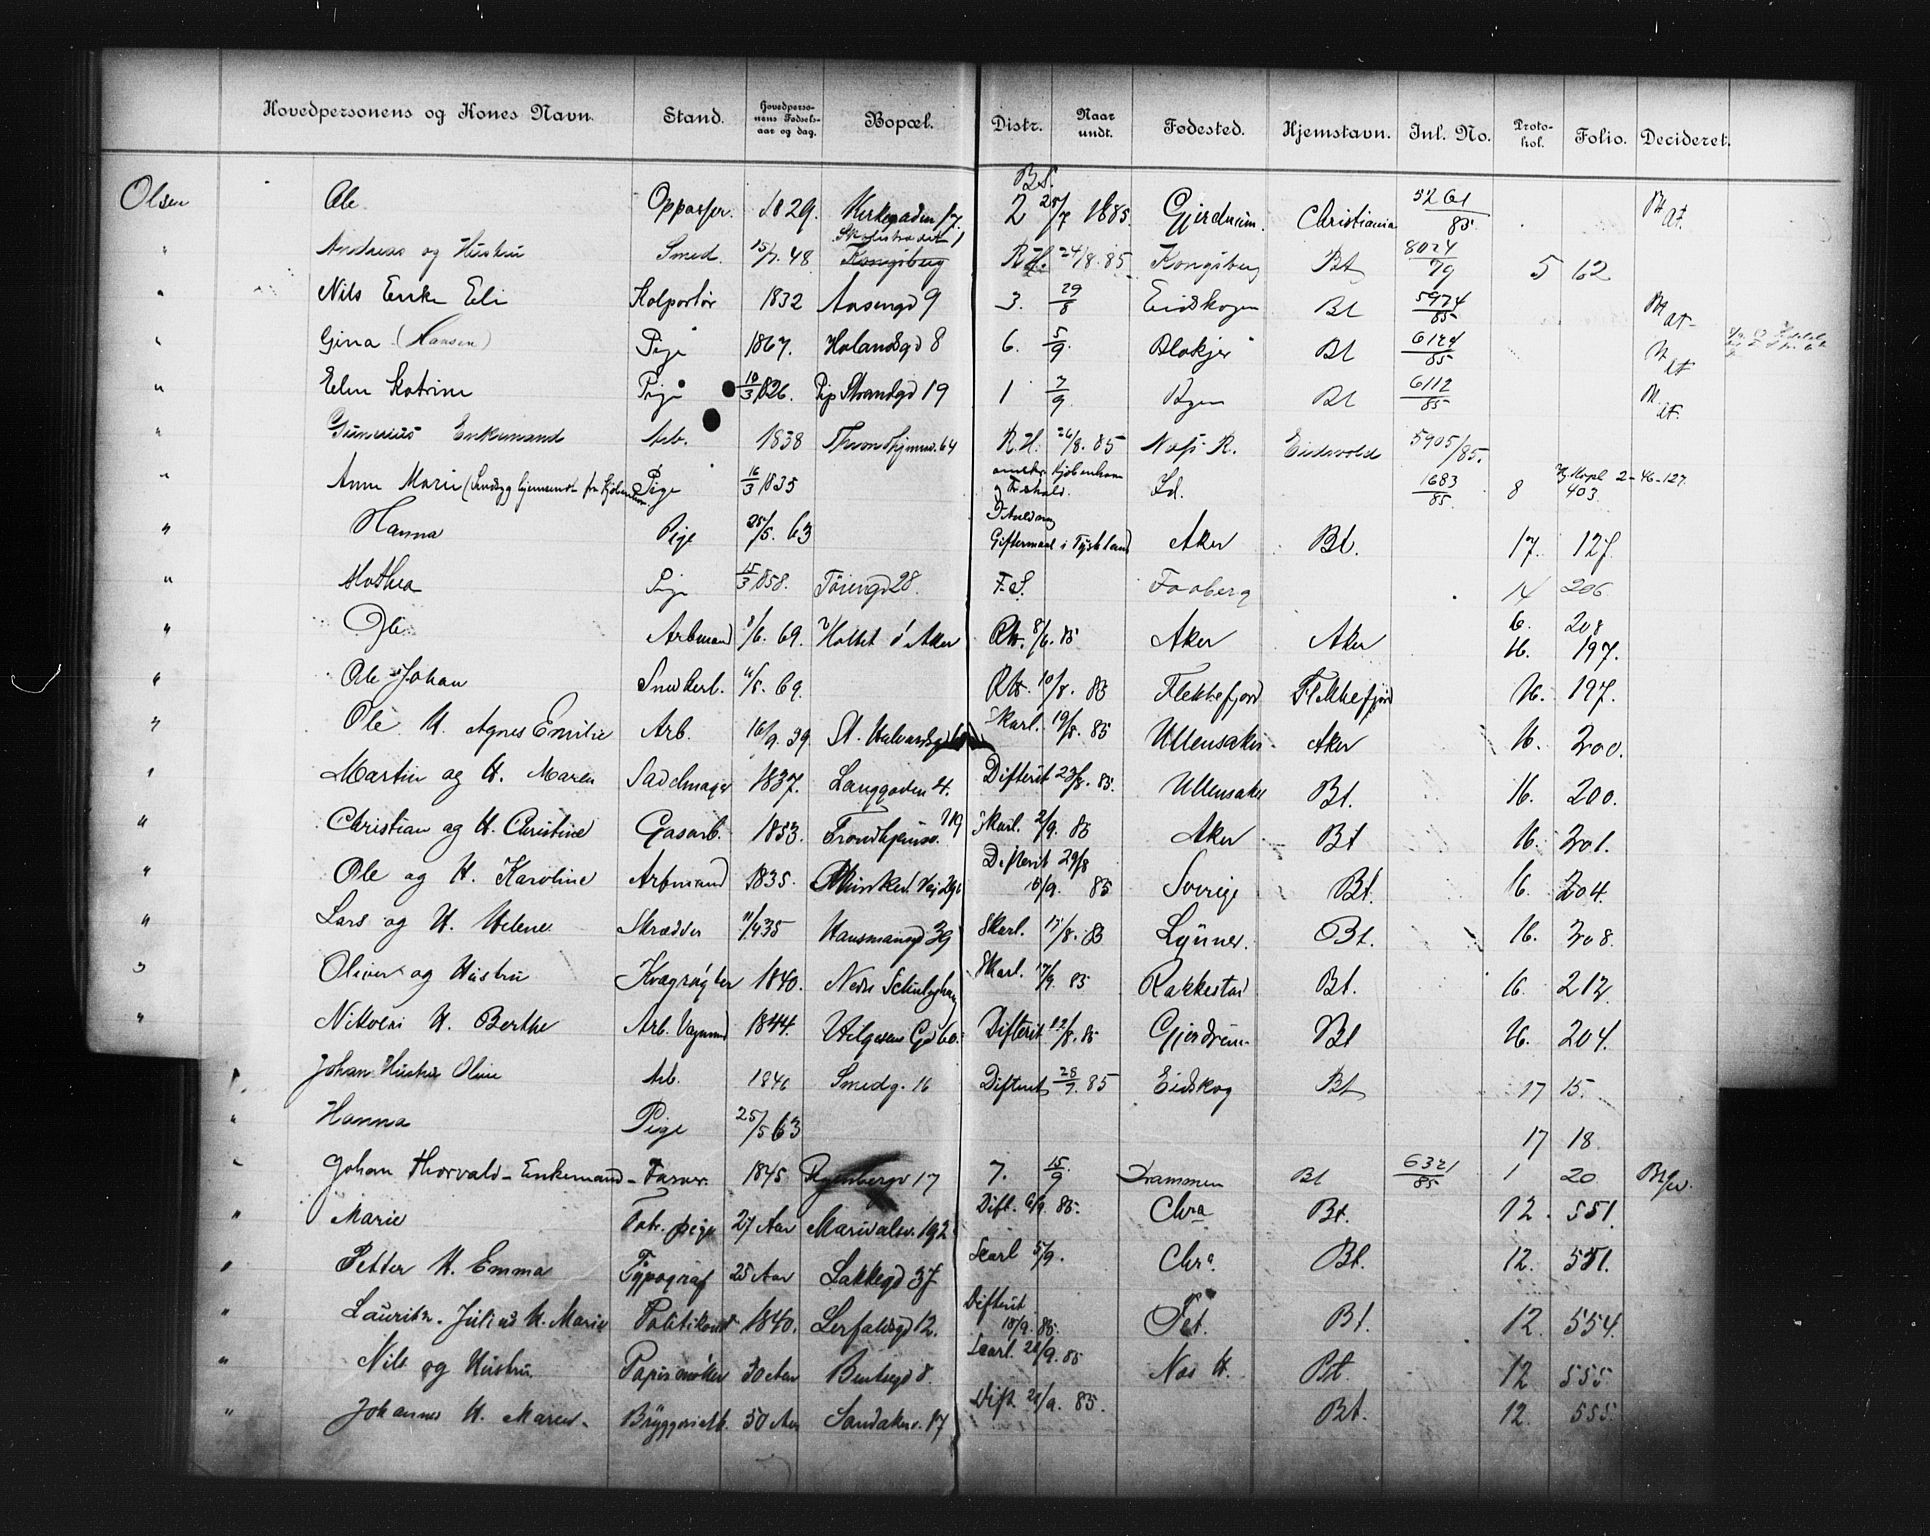 Hovedpersonens og Kones Navn. Stand. Hovedpersonens Fødselsaar og dag. Bopæl. Distr. Naar undt. Fødested. Hjemstavn. Inl. No. Protokol. Folio. Decideret.
Olsen Ole Oppasser. 1829. Kirkegaden 17. B.S. 2 25/7 1885. Gjerdrum. Christiania 5261/85
" Andreas og Hustru Smed. 15/7. 48 Kongsberg R.H. 24/8. 85 Kongsberg Bt 8024/79 5 62
" Nils Enke Eli Kolportør 1832 Aasengd 9 3. 29/8 Eidskogen Bt 5974/85
" Gina (Hansen) Pige 1867. Holandsgd 8 6. 5/9. Blakjer Bt 6124/85
" Elen Katrine Pige 10/3 1826. Pip Strandgd 19 1 7/9. Byen Bt 6112/85
" Gunerius Enkemand Arb. 1838 Throndhjemsv. 64 R.H. 26/8. 85 Næss R. Eidsvold 5905/85.
" Anne Marie (Sindsyg hjemsendt fra Kjøbenhavn) Pige 16/3 1835 Kjøbenhavn 1683/85 8 403
" Hanna Pige 25/5. 63 Giftermaal i Tydskland Aker Bt. 17. 127.
" Mathea Pige 15/3 1858. Tøiengd 28. F.S. Faaberg 14 206
" Ole Arbmand 8/6. 69. Holtet i Aker 8/6. 85 Aker Aker 16. 208 16. 197.
" Ole Johan Snedkerl. 11/5. 69. 10/8. 85 Flekkefjord Flekkefjord 16. 197.
" Ole H. Agnes Emilie Arb. 16/9. 39. St. Halvardsgd Skarl. 19/8. 85 Ullensaker Aker 16. 200.
" Martin og H. Maren Sadelmager 1837. Langgaden 4. Difterit 23/8. 85. Ullensaker Bt. 16. 200.
" Christian og H. Christine Gasarb. 1853. Trondhjemsv. 119 Skarl. 2/9. 85 Aker Bt 16. 201.
" Ole og H. Karoline Arbmand 1835. Munked. Vej 29 Difterit 29/8 10/9. 85 Sverige Bt. 16. 204.
" Lars og H. Helene Skrædder 11/4 35 Hausmansgd 39 Skarl. 15/8. 85 Lynner. Bt. 16. 208.
" Oliver og Hustru Kvægrøgter 1840. Nedre Skarl. 17/9. 85 Rakkestad Bt. 16. 212.
" H. Berthe Arb. Vognmd 1844. Helgesens Gd 60. Difterit 12/8. 85 Gjerdrum Bt 16. 204.
" Johan Hustru Oline Arb. 1846 Smedg. 16 Difterit 25/9 85 Eidskog Bt 17 15.
" Hanna Pige 25/5 63 17 18.
" Johan Thorvald - Enkemand - Farver. 1845 Ryenbergv 17 7. 15/9 Drammen Bt 6321/85 1 20
" Marie Fabr. pige 27 Aar Maridalsv. 192 Dift. 6/9. 85. Chra Bt. 12. 551.
" Petter H. Emma Typograf 25 Aar Lakkegd 37 Scarl 5/9. Chra. Bt. 12. 551.
" Lauritz. Julius H. Marie Politikonst 1840. Lerfaldsgd 12. Difterit 18/9. 85. Fet. Bt. 12. 554.
" Nils og Hustru Papirmøller 30 Aar Bentsegd 8. Scarl. 20/9. 85 Næs H. Bt. 12 555.
" Johannes H. Maren. Bryggeriarb. 50 Aar Sandakerv. 87 Dift. 21/9. 85. Bt. 12. 555.